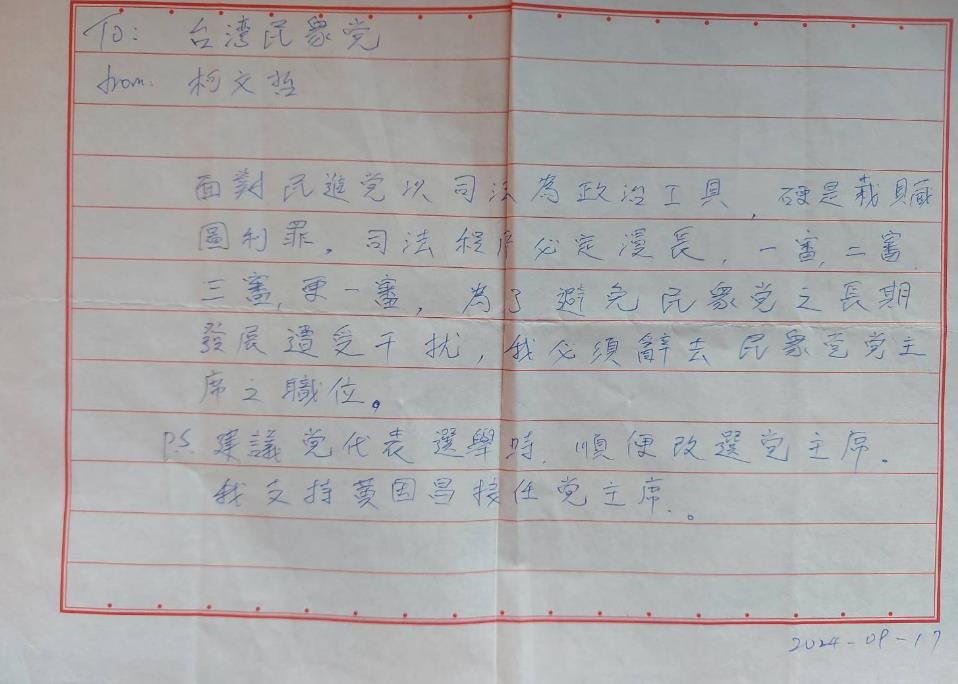 To: 台湾民眾党
from: 柯文哲
面對民進党以司法為政治工具，硬是栽贓
圖利罪，司法程序必定漫長，一審，二審，
三審，更一審，為了避免民眾党之長期
發展遭受干扰，我必須辭去民眾党党主
席之職位。
PS 建議党代表選舉時，順便改選党主席。
我支持黃国昌接任党主席。
2024-09-17